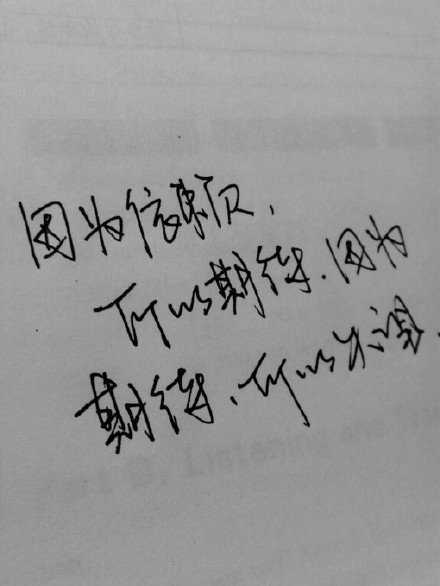 因为依赖,
所以期待.因为
期待.所以失望.
Listening and